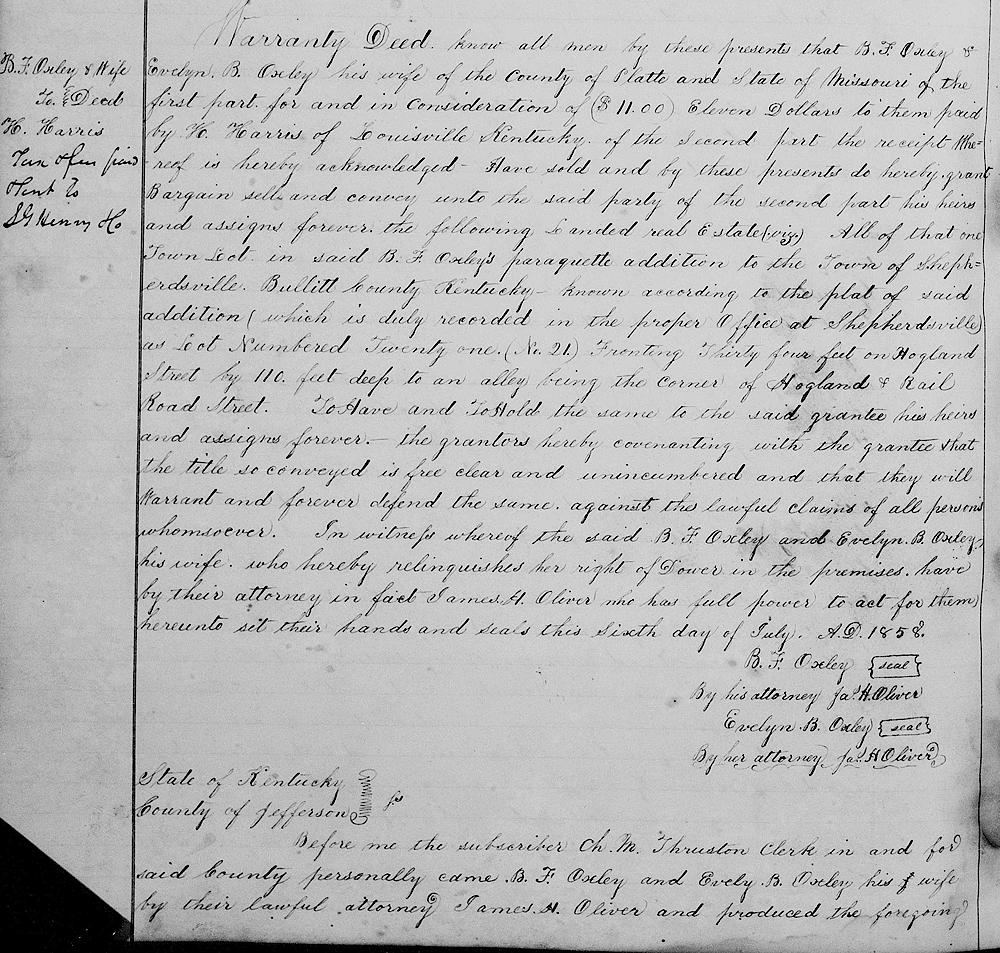 Warranty Deed. Know all men by these presents that B. F. Oxley &
B. F. Oxley & Wife
To } Deed
H. Harris
Sent to
S G Henny & Co
Evelyn. B. Oxley his wife of the County of Platte and State of Missouri of the
first part. for and in consideration of ($ 11.00) Eleven Dollars to them paid
by H. Harris of Louisville Kentucky. of the Second part the receipt Whe=
-reof is hereby acknowledged - Have sold and by these presents do hereby. grant
Bargain sells and convey unto the said party of the second part his heirs
and assigns forever. the following Landed real Estate (viz.) All of that one
Town Lot. in said B. F. Oxley's paraquette addition to the Town of Sheph=
erdsville. Bullitt County Kentucky - known according to the plat of said
addition ( which is duly recorded in the proper Office at Shepherdsville)
as Lot Numbered Twenty one. (No. 21.) Fronting Thirty four feet on Hogland
Street by 110. feet deep to an alley being the corner of Hogland & Rail
Road Street. To Have and To Hold the same to the said grantee his heirs
and assigns forever. - the grantors hereby covenanting with the grantee that
the title so conveyed is free clear and unincumbered and that they will
Warrant and forever defend the same. against the lawful claims of all persons
whomsoever. In witness whereof the said B. F. Oxley and Evelyn. B. Oxley
his wife. who hereby relinquishes her right of Dower in the premises. have
by their attorney in fact James. H. Oliver who has full power to act for them
hereunto sit their hands and seals this Sixth day of July. A.D. 1858.
B. F. Oxley {seal}
By his attorney Jas. H. Oliver
Evelyn. B. Oxley {seal}
By her attorney Jas. H Oliver
State of Kentucky
County of Jefferson } ss
Before me the subscriber Ch. M. Thruston Clerk in and for
said County personally came. B. F. Oxley and Evely. B. Oxley his wife
by their lawful attorney James. H. Oliver and produced the foregoing